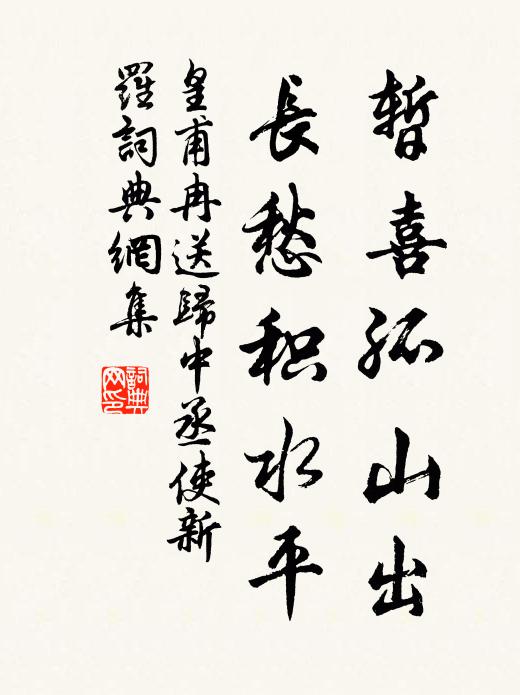 暫喜孤山出
長愁积水平
皇甫冉送歸中丞使新
羅詞典網集
詞典
网印